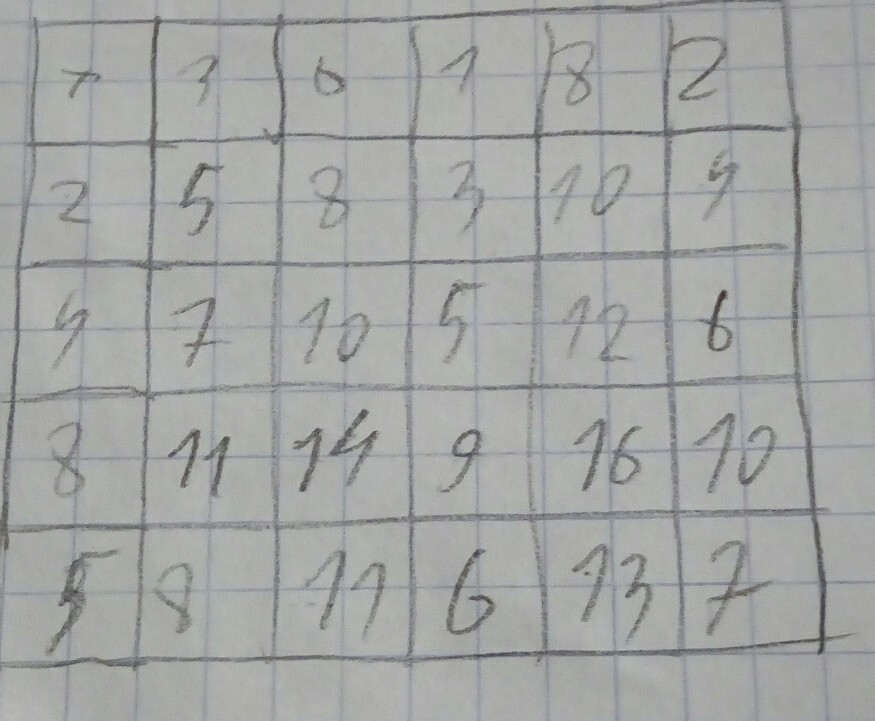 + 3 6 1 8 2
2 5 8 3 10 4
4 7 10 5 12 6
8 11 14 9 16 10
5 8 11 6 13 7